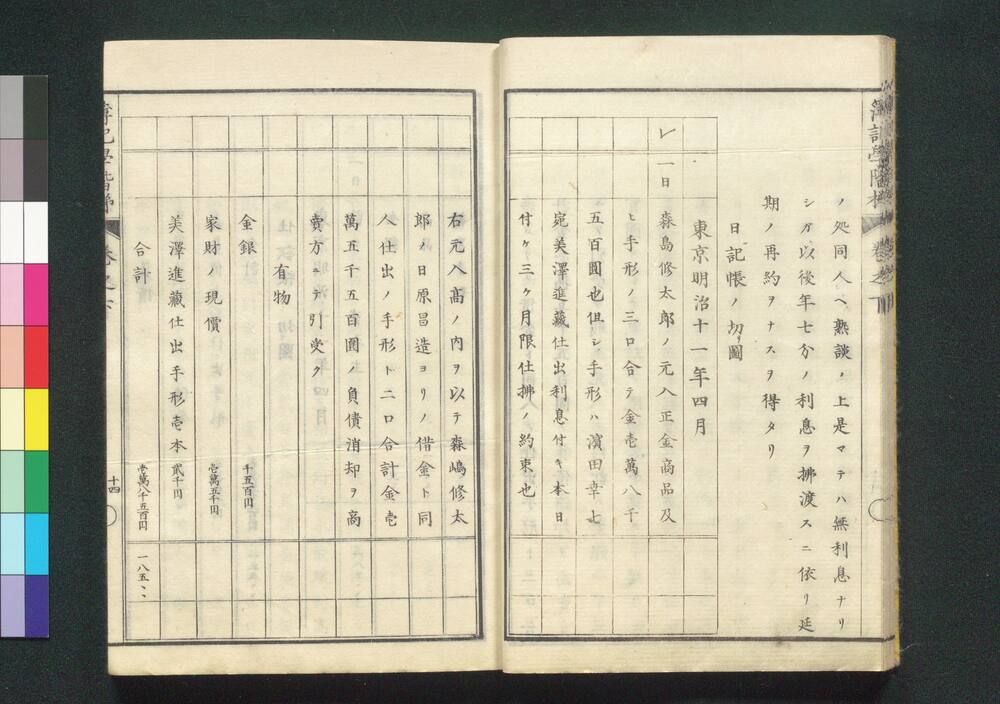 ノ処同人ヘ熟談ノ上是マテハ無利息ナリ
シガ以後年七分ノ利息ヲ拂渡スニ依リ延
期ノ再約ヲナスヲ得タリ
日記帳ノ切圖
東京明治十一年四月
一日 森島修太郎ノ元入正金商品及
ヒ手形ノ三口合テ金壱萬八千
五百圓也但シ手形ハ濱田幸七
宛美澤進藏仕出利息付キ本日
付ケ三ヶ月限仕拂ノ約束也
右元入高ノ内ヲ以テ森嶋修太
郎ノ日原昌造ヨリノ借金ト同
人仕出ノ手形ト二口合計金壱
萬五千五百圓ノ負債消却ヲ商
賣方ニテ引受ク
有物
金銀 千五百円
家財ノ現價 壱萬五千円
美澤進藏仕出手形壱本 貳千円
合計 壱萬八千五百円 一八五、、
十四